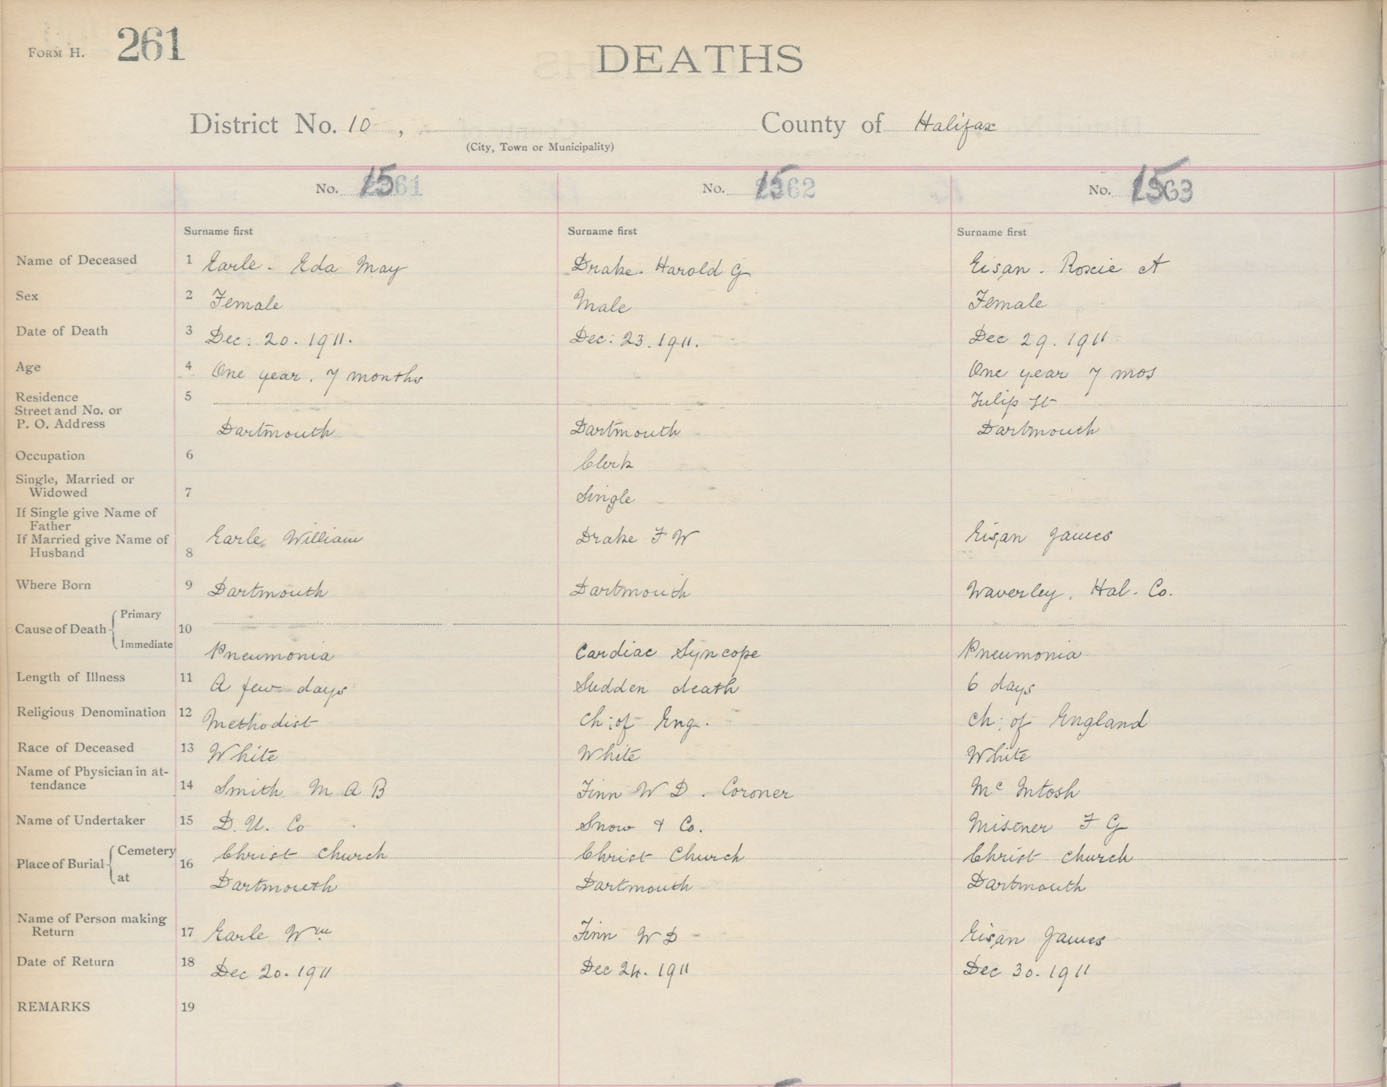 FORM H. 261
DEATHS
District No. 10 , County of Halifax
(City, Town or Municipality)
No. 1561 No. 1562 No. 1563
Surname first Surname first Surname first
Name of Deceased 1 Earle. Eda May Drake. Harold G Eisan. Roxie A
Sex 2 Female Male Female
Date of Death 3 Dec: 20. 1911. Dec: 23. 1911. Dec 29. 1911
Age 4 One year. 7 months One year 7 mos
Residence 5 Tulip St
Street and No. or
P. O. Address Dartmouth Dartmouth Dartmouth
Occupation 6 Clerk
Single, Married or
Widowed 7 Single
If Single give Name of
Father
If Married give Name of Earle William Drake F W Eisan James
Husband 8
Where Born 9 Dartmouth Dartmouth Waverley. Hal. Co.
Primary
Cause of Death 10
Immediate Pneumonia Cardiac Syncope Pneumonia
Length of Illness 11 A few days Sudden death 6 days
Religious Denomination 12 Methodist Ch: of Eng. Ch: of England
Race of Deceased 13 White White White
Name of Physician in at-
tendance 14 Smith M A B Finn W D. Coroner Mc Intosh
Name of Undertaker 15 D. U. Co Snow & Co. Misener F G
Cemetery Christ Church Christ Church Christ Church
Place of Burial 16
at Dartmouth Dartmouth Dartmouth
Name of Person making
Return 17 Earle Wm Finn W D Eisan James
Date of Return 18 Dec 20. 1911 Dec 24. 1911 Dec 30. 1911
REMARKS 19